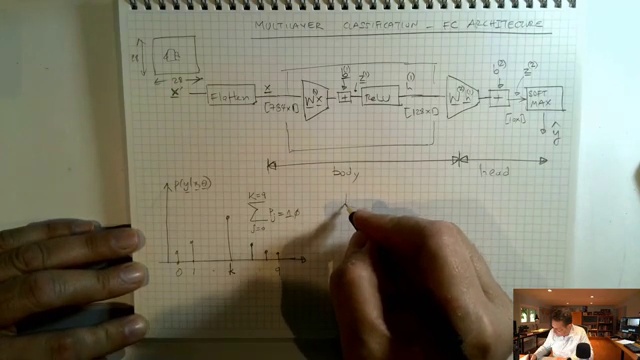 MULTILAYER CLASSIFICATION - FC ARCHITECTURE
28
28
x Flatten x [784x1] W(1)x + b(1) z(1) ReLU h(1) [128x1] W(2)h(1) + b(2) z(2) [10x1] SOFT MAX
ŷ
body head
p(y|x,θ)
K=9
Σ pj = 1.0
j=0
0 1 . k 9